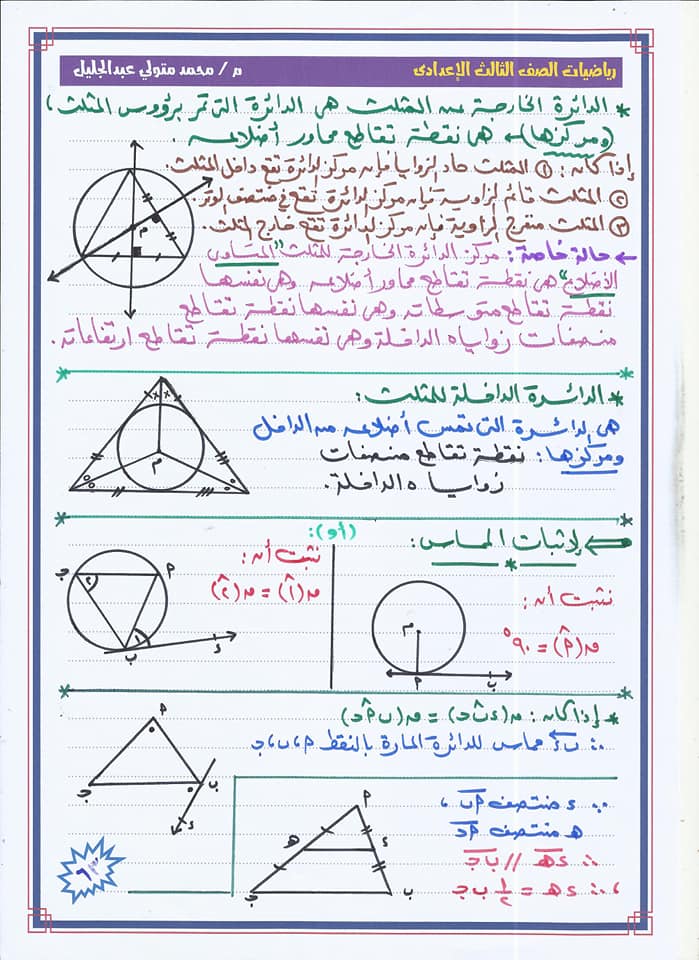 رياضيات الصف الثالث الإعدادى
م / محمد متولي عبدالجليل
* الدائرة الخارجة عن المثلث هى الدائرة التى تمر برؤوس المثلث ،
(ومركزها) ← هى نقطة تقاطع محاور أضلاعه .
إذا كان : ① المثلث حاد الزوايا فإنه مركز الدائرة تقع داخل المثلث.
② المثلث قائم الزاوية فإنه مركز الدائرة تقع فى منتصف الوتر.
③ المثلث منفرج الزاوية فإنه مركز الدائرة تقع خارج المثلث.
← حالة خاصة : مركز الدائرة الخارجة للمثلث "المتساوى
الأضلاع" هى نقطة تقاطع محاور أضلاعه وهى نفسها
نقطة تقاطع متوسطاته وهى نفسها نقطة تقاطع
منصفات زواياه الداخلة وهى نفسها نقطة تقاطع ارتفاعاته .
م
* الدائرة الداخلة للمثلث :
هى الدائرة التى تمس أضلاعه من الداخل
ومركزها : نقطة تقاطع منصفات
زواياه الداخلة .
م
⇐ لإثبات المماس :
نثبت أن :
ق(أ̂) = ٩٠°
م
أ
ب
(أو) :
نثبت أن :
ق(١̂) = ق(٢̂)
أ
ج
ب
د
١
٢
* إذا كان : ق(د ب̂ ج) = ق(ب أ̂ ج)
∴ ب د مماس للدائرة المارة بالنقط أ ، ب ، ج
أ
ب
ج
د
∵ د منتصف أب ،
ه منتصف أج
∴ ده // ب ج
، ∴ ده = ١/٢ ب ج
أ
د
ه
ب
ج
٩